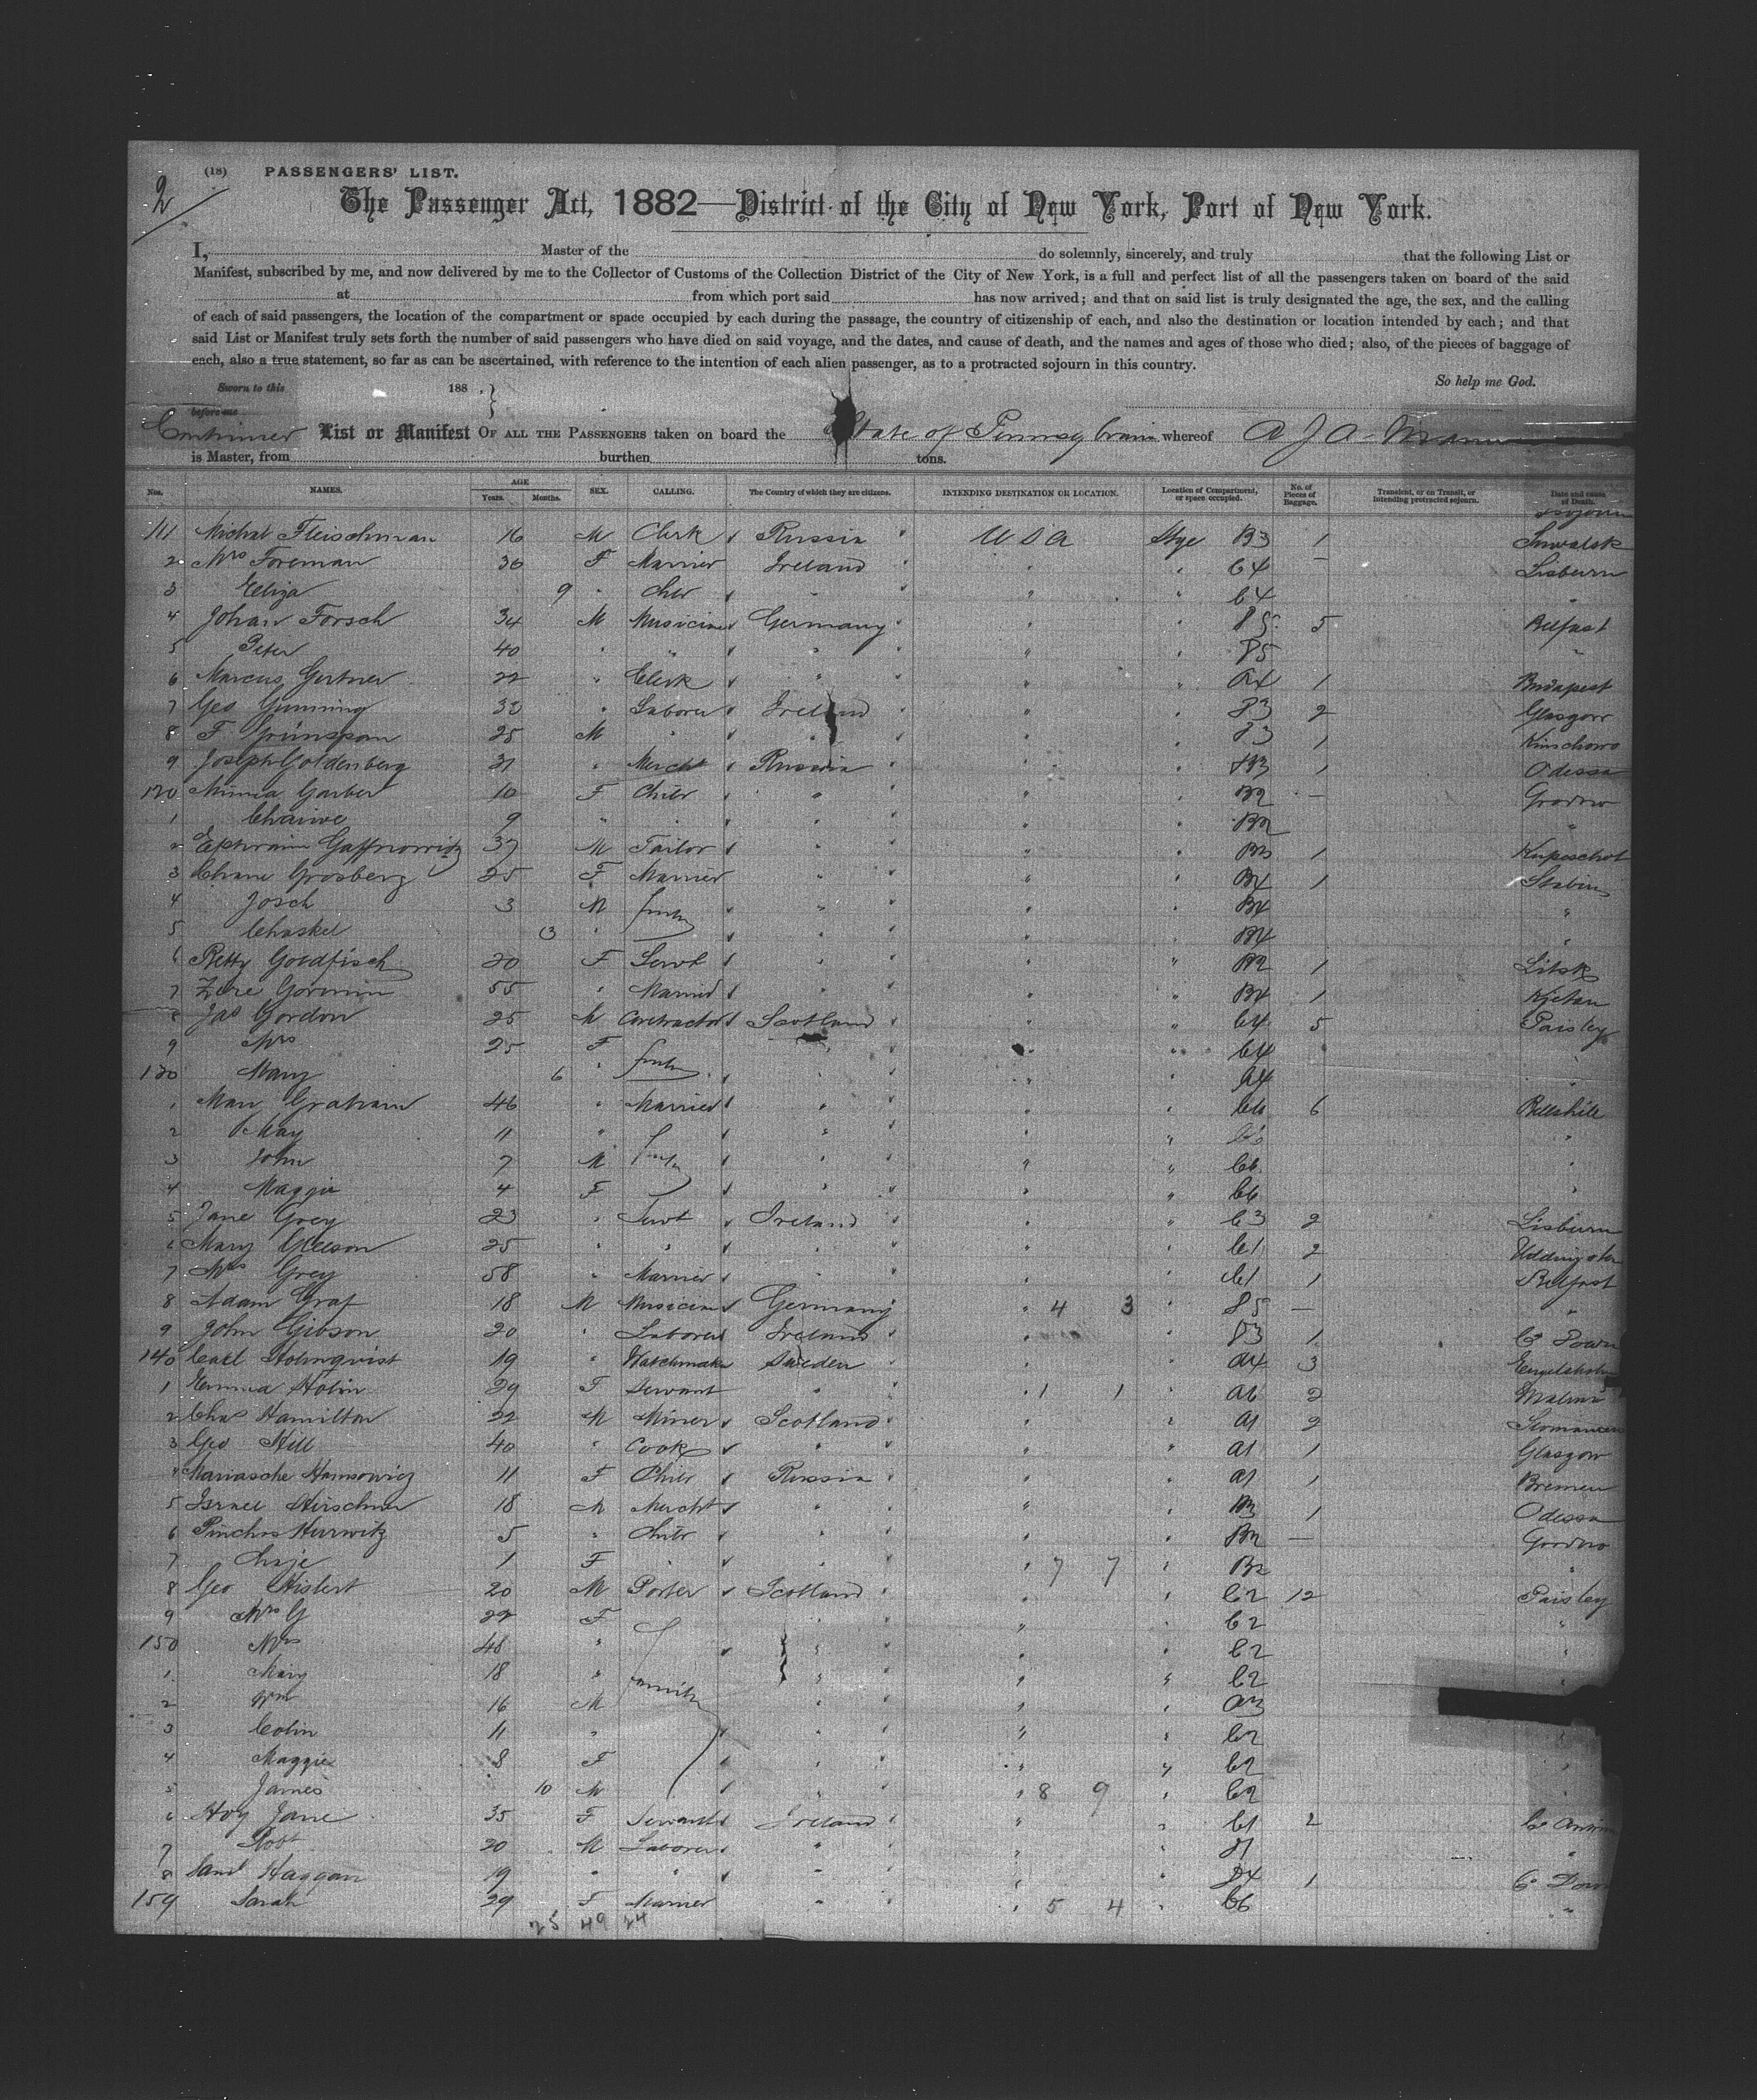 2
(18) PASSENGERS' LIST.
The Passenger Act, 1882—District of the City of New York, Port of New York.
I, Master of the do solemnly, sincerely, and truly that the following List or
Manifest, subscribed by me, and now delivered by me to the Collector of Customs of the Collection District of the City of New York, is a full and perfect list of all the passengers taken on board of the said
at from which port said has now arrived; and that on said list is truly designated the age, the sex, and the calling
of each of said passengers, the location of the compartment or space occupied by each during the passage, the country of citizenship of each, and also the destination or location intended by each; and that
said List or Manifest truly sets forth the number of said passengers who have died on said voyage, and the dates, and cause of death, and the names and ages of those who died; also, of the pieces of baggage of
each, also a true statement, so far as can be ascertained, with reference to the intention of each alien passenger, as to a protracted sojourn in this country.
Sworn to this 188 . } So help me God.
before me
List or Manifest OF ALL THE PASSENGERS taken on board the State of Pennsylvania whereof A J A
is Master, from burthen tons.
Nos. NAMES. AGE Years. Months. SEX. CALLING. The Country of which they are citizens. INTENDING DESTINATION OR LOCATION. Location of Compartment, or space occupied. No. of Pieces of Baggage. Transient, or on Transit, or Intending protracted sojourn. Date and cause of Death.
111 Michal Fleischman 16 M Clerk Russia U S A Stge B3 1 Suwalsk
2 Mrs Foreman 30 F Married Ireland " " C4 — Lisburn
3 Eliza 9 " Chld " " " C4 "
4 Johan Forsch 34 M Musician Germany " " 5 Belfast
5 Peter 40 " " " " " "
6 Marcus Gertner 22 " Clerk " " " 1 Budapest
7 Geo Gunning 30 " Laborer Ireland " " 2 Glasgow
8 F Grünspan 25 M " " " " 1
9 Joseph Goldenberg 31 " Mercht Russia " " 1 Odessa
120 Minna Garber 10 F Child " " " B2 — Grodno
1 Chaiwe 9 " " " " " B2 "
2 Ephraim Gaffnowitz 37 M Tailor " " " B3 1 Kupischok
3 Chane Grosberg 25 F Married " " " B4 1 Stabin
4 Josch 3 M " " " B4 "
5 Chaskel 3 " " " " B4 "
6 Betty Goldfisch 20 F Servt " " " B2 1
7 Gormin 55 " Married " " " B4 1
8 Jas Gordon 25 M Contractor Scotland " " C4 5 Paisley
9 Mrs 25 F " " " C4 "
130 Mary 6 " " " " C4 "
1 Mary Graham 46 " Married " " " C6 6 Bellshill
2 May 11 " " " " C6 "
3 John 7 M " " " C6 "
4 Maggie 4 F " " " C6 "
5 Jane Grey 23 " Servt Ireland " " C3 2 Lisburn
6 Mary Gleeson 25 " " " " " C1 2 Uddingston
7 Mrs Grey 58 " Married " " " C1 1 Belfast
8 Adam Graf 18 M Musician Germany " 4 3 " — "
9 John Gibson 20 " Laborer Ireland " " 1 Co Down
140 Carl Holmquist 19 " Watchmaker Sweden " " A4 3
1 Emma Holm 29 F Servant " " 1 1 " A6 2 Malmo
2 Chas Hamilton 22 M Miner Scotland " " A1 2
3 Geo Hill 40 " Cook " " " A1 1 Glasgow
4 Mariasche Hamsowicz 11 F Child Russia " " A1 1 Bremen
5 Israel Hirschman 18 M Mercht " " " B3 1 Odessa
6 Pinchos Hurwitz 5 " Child " " " B2 — Grodno
7 Chaje 1 F " " " 7 7 " B2 "
8 Geo Hislert 20 M Porter Scotland " " C2 12 Paisley
9 Mrs G 22 F " " " C2 "
150 Mrs 48 " " " " C2 "
1 Mary 18 " family " " " C2 "
2 Wm 16 M " " " A3
3 Colin 11 " " " " C2 "
4 Maggie 8 F " " " C2 "
5 James 10 M " " 8 9 " C2 "
6 Hoy Jane 35 F Servant Ireland " " C1 2 Co Antrim
7 Robt 20 M Laborer " " " "
8 Saml Haggan 19 " " " " " 1 Co Down
159 Sarah 29 F Married " " 5 4 " C6 "
25 49 24